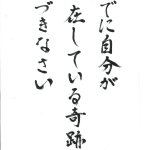 でに自分が
在している奇跡
づきなさい